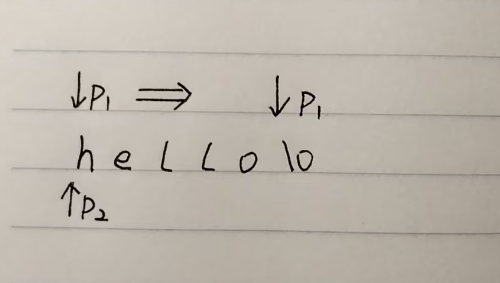 ↓P₁ ⇒ ↓P₁
h e l l o \0
↑P₂